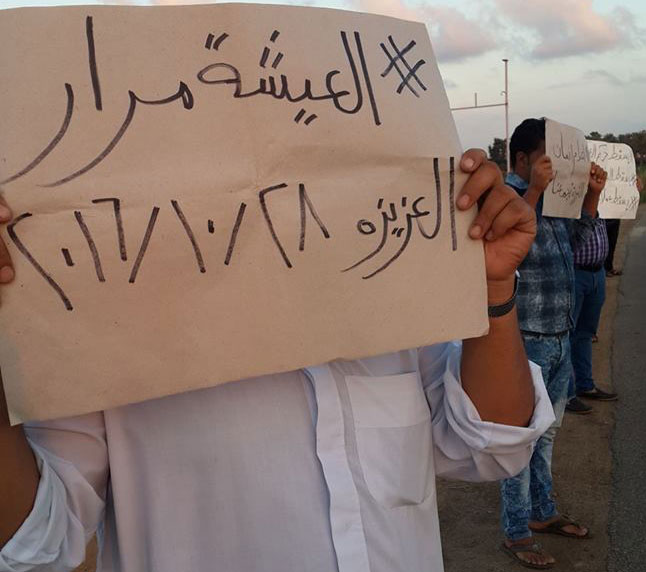 #العيشة مرار
العزيزه ٢٨/١٠/٢٠١٦